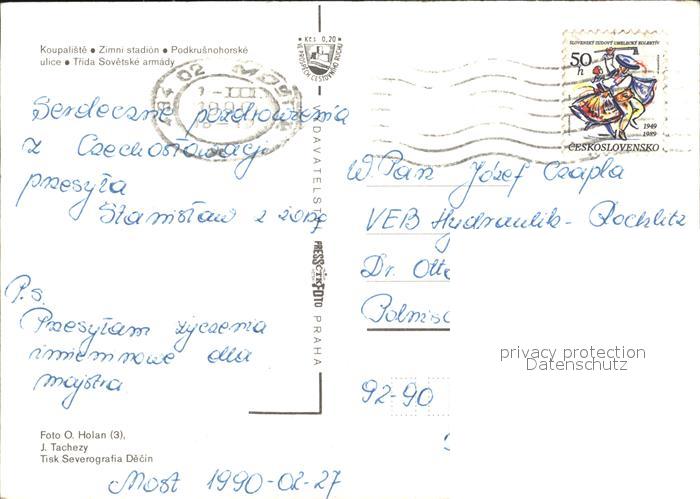 Koupaliště • Zimní stadión • Podkrušnohorské
ulice • Třída Sovětské armády
Kčs 0,20
VE PROSPĚCH CESTOVNÍHO RUCHU
434 02 MOST
SLOVENSKÝ ĽUDOVÝ UMELECKÝ KOLEKTÍV
50 h
1949
1989
ČESKOSLOVENSKO
Serdeczne pozdrowienia
z Czechosłowacji
przesyła
Stanisław z żoną
P.s.
Przesyłam życzenia
imieninowe dla
majstra
DAVATELST
PRESSFOTO PRAHA
W.Pan Józef Czapla
VEB Hydraulik - Rochlitz
Dr. Otto
Polnisc
92-90
privacy protection
Datenschutz
Foto O. Holan (3),
J. Tachezy
Tisk Severografia Děčín
Most 1990-02-27